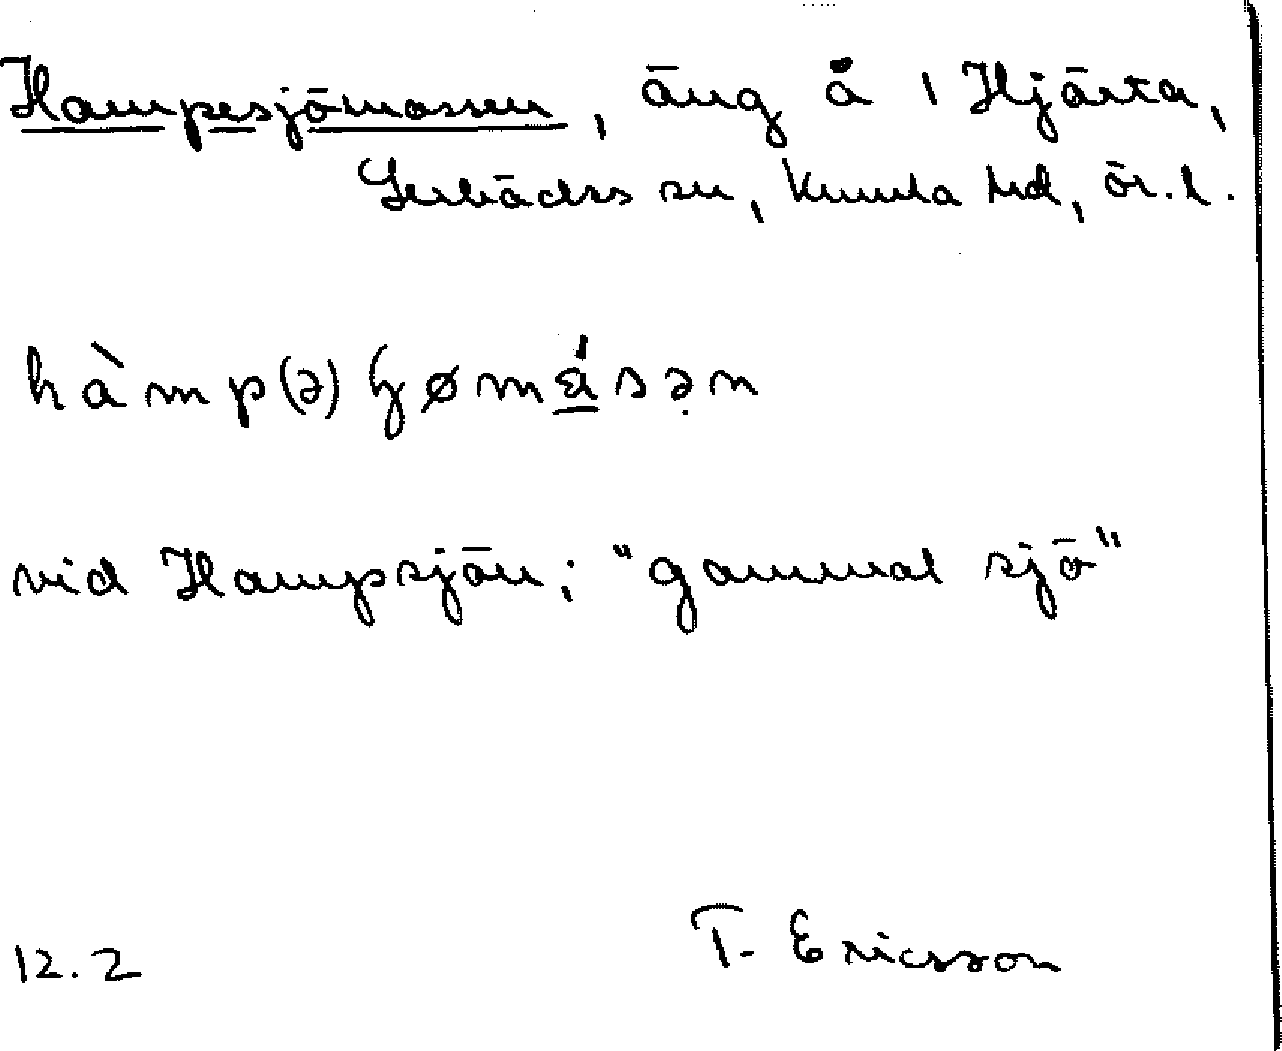 Hampesjömossen, äng å 1 Hjärta,
Lerbäcks sn, Kumla hd, ör. l.
hàmp(ə)ɧømásən
vid Hampsjön; "gammal sjö"
12.2 T. Ericsson